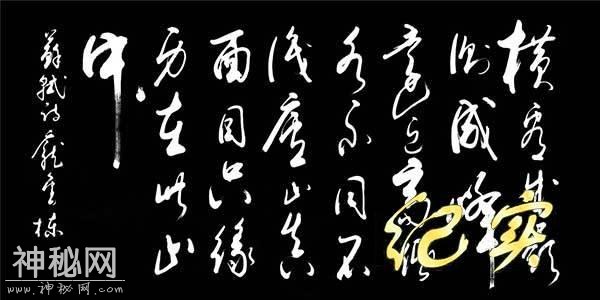 横看成嶺
侧成峰
遠近高低
各不同不
識廬山真
面目只缘
身在此山
中
蘇軾诗
纪实
神秘网
www.神秘网.com